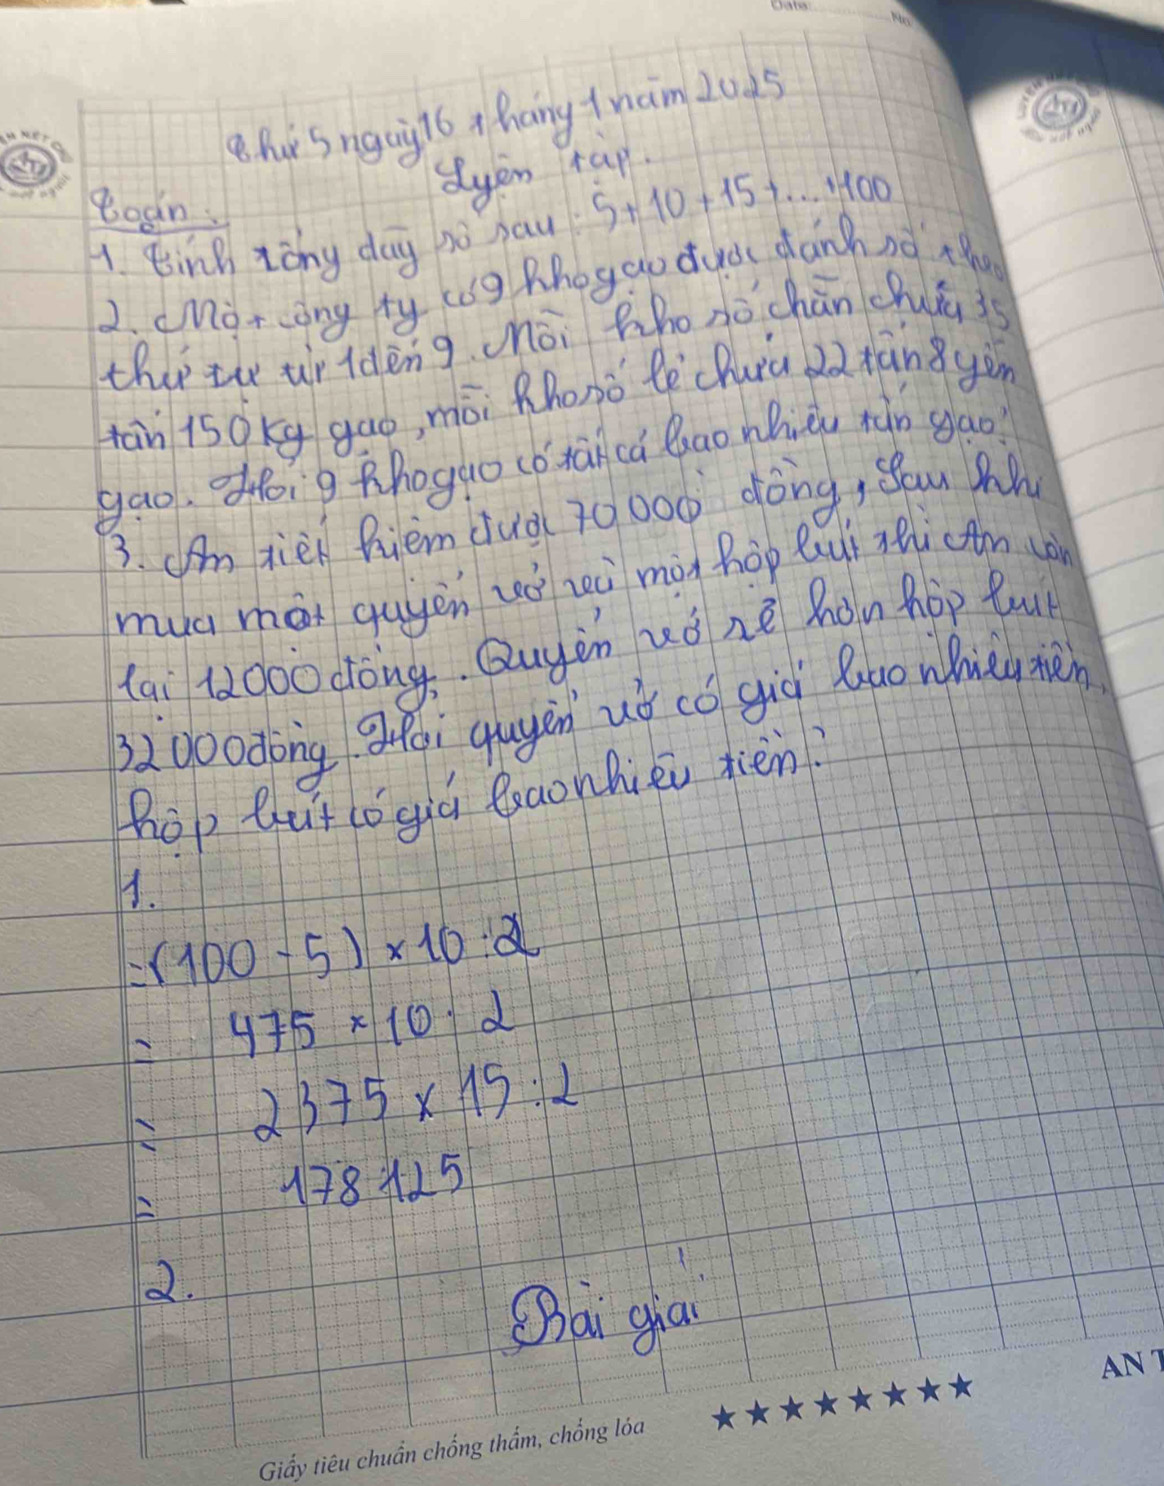 Date
No
Thứ 5 ngày 16 tháng 1 năm 2025
Luyện tập.
Toán:
1. Tính tổng dãy số sau: 5+10+15+...+100
2. Một công ty có 9 kho gạo được đánh số theo
thứ tự từ 1 đến 9. Mỗi kho số chẵn chứa 35
tấn 150 kg gạo, mỗi kho số lẻ chứa 22 tấn 8 yến
gạo. Hỏi 9 kho gạo có tất cả bao nhiêu tấn gạo?
3. An tiết kiệm được 70 000 đồng, sau khi
mua một quyển vở và một hộp bút thì An còn
lại 12000 đồng. Quyển vở rẻ hơn hộp bút
32 000 đồng. Hỏi quyển vở có giá bao nhiêu tiền,
hộp bút có giá bao nhiêu tiền?
1.
=(100-5) × 10 : 2
= 475 × 10 : 2
= 2375 × 15 : 2
= 178125
2.
Bài giải
Giấy tiêu chuẩn chống thấm, chống lóa
★★★★★★★★